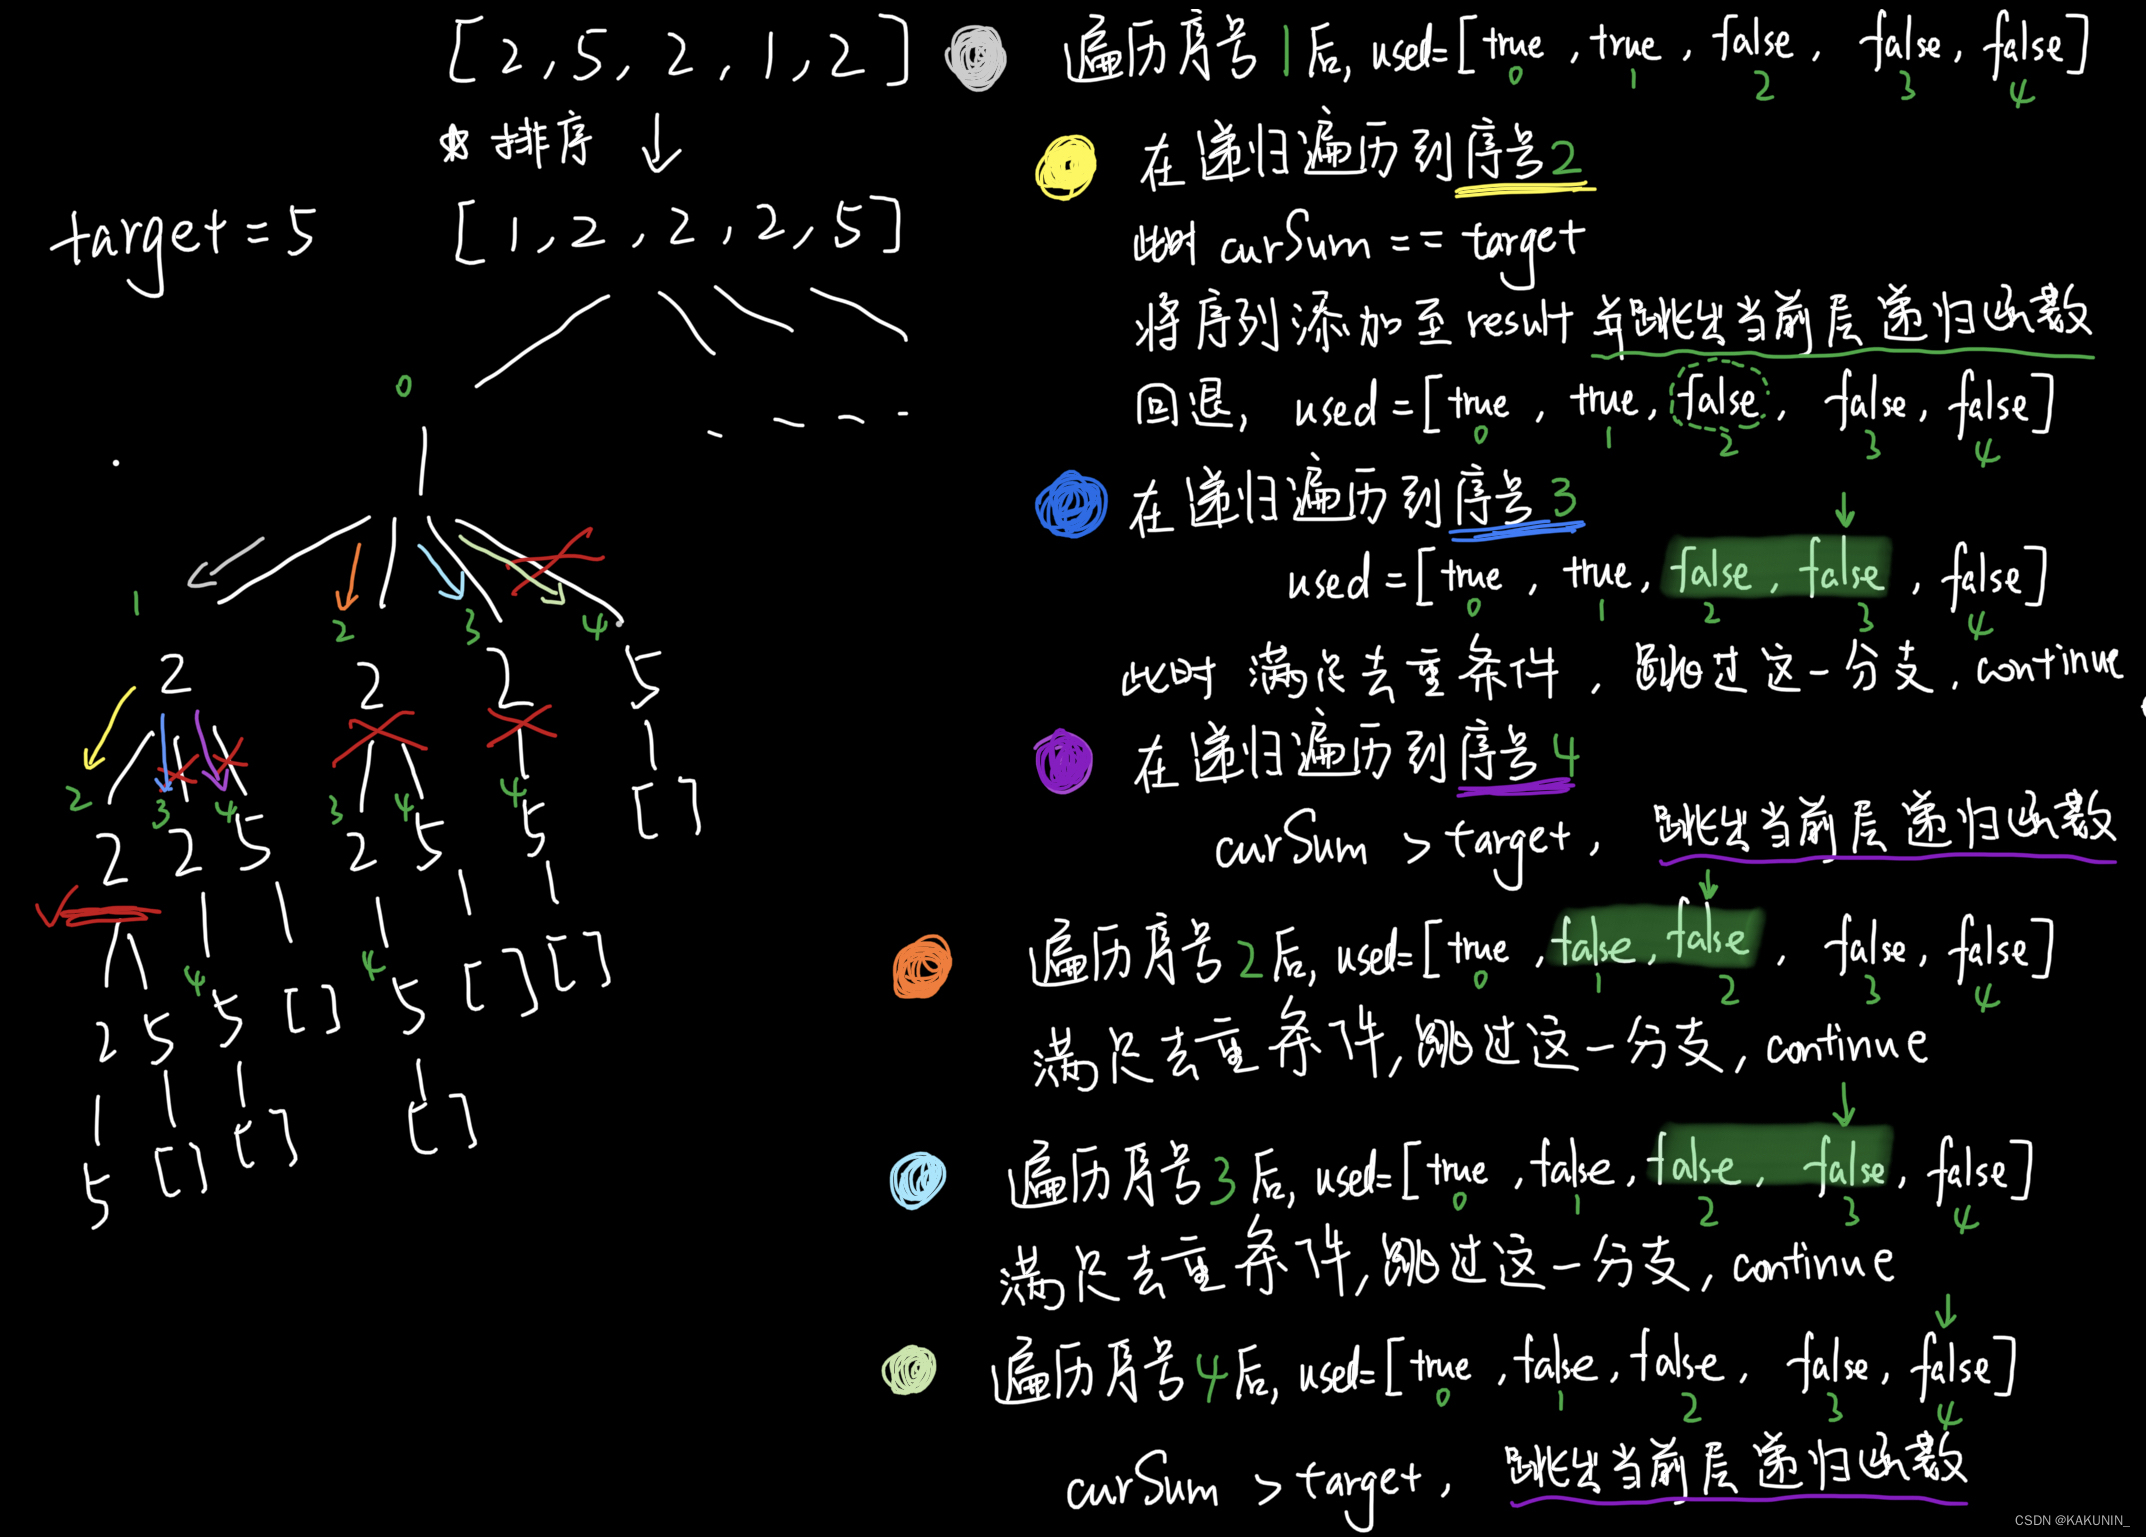 [2,5,2,1,2]
* 排序 ↓
target=5
[1,2,2,2,5]
0
1
2
3
4
2
2
2
5
2
3
4
3
4
4
2
2
5
2
5
5
[]
4
4
2
5
5
[]
5
[]
[]
5
[]
[]
[]
遍历序号1后, used=[true,true,false,false,false]
0 1 2 3 4
在递归遍历到序号2
此时 curSum == target
将序列添加至result并跳出当前层递归函数
回退, used=[true,true,false,false,false]
0 1 2 3 4
在递归遍历到序号3
used=[true,true,false,false,false]
0 1 2 3 4
此时满足去重条件, 跳过这一分支, continue
在递归遍历到序号4
curSum > target, 跳出当前层递归函数
遍历序号2后, used=[true,false,false,false,false]
0 1 2 3 4
满足去重条件, 跳过这一分支, continue
遍历序号3后, used=[true,false,false,false,false]
0 1 2 3 4
满足去重条件, 跳过这一分支, continue
遍历序号4后, used=[true,false,false,false,false]
0 1 2 3 4
curSum > target, 跳出当前层递归函数
CSDN @KAKUNIN_